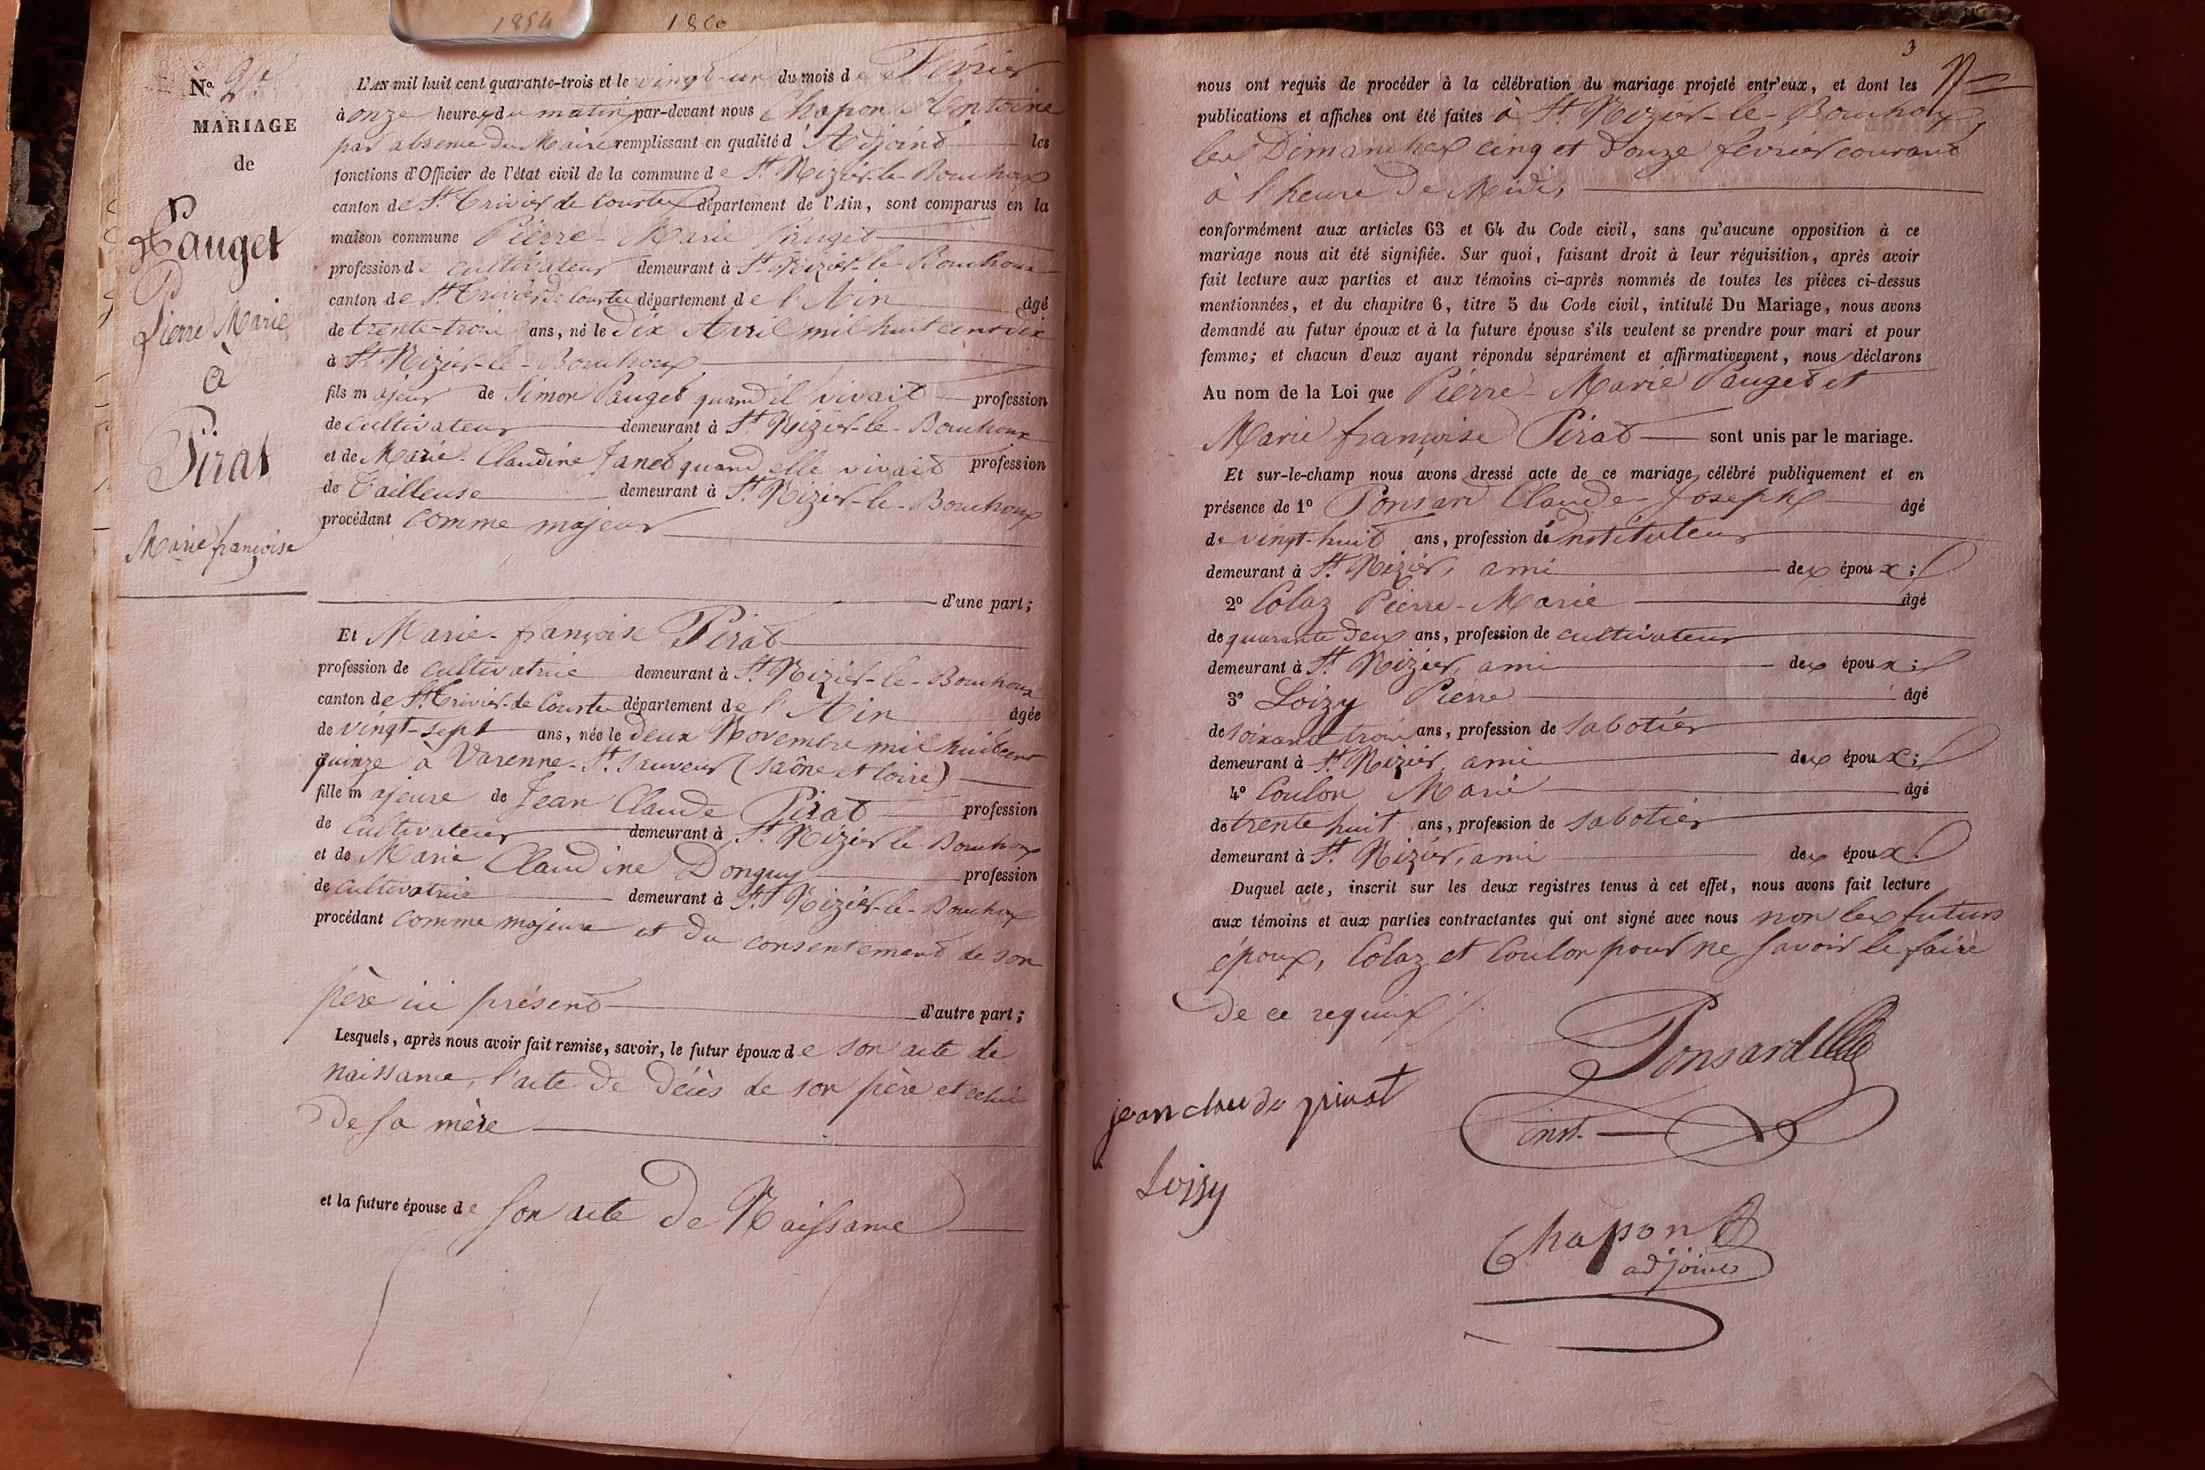 1854
1860
N.o 2.
MARIAGE
de
Pauget
Pierre Marie
à
Pirat
Marie françoise
L'AN mil huit cent quarante-trois et le vingt-un du mois de Février
à onze heures du matin par-devant nous Chapon Antoine
par absence du Maire remplissant en qualité d'Adjoint les
fonctions d'Officier de l'état civil de la commune de St. Nizier-le-Bouchoux
canton de St. Trivier de Courtes département de l'Ain, sont comparus en la
maison commune Pierre-Marie Pauget
profession de cultivateur demeurant à St. Nizier-le-Bouchoux
canton de St. Trivier de Courtes département de l'Ain âgé
de trente-trois ans, né le dix Avril mil huit cent dix
à St. Nizier-le-Bouchoux
fils majeur de Simon Pauget quand il vivait profession
de Cultivateur demeurant à St. Nizier-le-Bouchoux
et de Marie-Claudine Janet quand elle vivait profession
de Tailleuse demeurant à St. Nizier-le-Bouchoux
procédant comme majeur
d'une part;
Et Marie-françoise Pirat
profession de cultivatrice demeurant à St. Nizier-le-Bouchoux
canton de St. Trivier-de Courtes département de l'Ain âgée
de vingt-sept ans, née le deux Novembre mil huit cent
quinze à Varenne-St. Sauveur (Saône et Loire)
fille majeure de Jean Claude Pirat profession
de Cultivateur demeurant à St. Nizier-le-Bouchoux
et de Marie Claudine Donguy profession
de cultivatrice demeurant à St. Nizier-le-Bouchoux
procédant comme majeure et du consentement de son
père ici présent d'autre part;
Lesquels, après nous avoir fait remise, savoir, le futur époux de son acte de
naissance, l'acte de décès de son père et celui
de sa mère
et la future épouse de son acte de Naissance
3
nous ont requis de procéder à la célébration du mariage projeté entr'eux, et dont les
publications et affiches ont été faites à St. Nizier-le-Bouchoux,
les Dimanches cinq et douze février courant
à l'heure de Midi,
conformément aux articles 63 et 64 du Code civil, sans qu'aucune opposition à ce
mariage nous ait été signifiée. Sur quoi, faisant droit à leur réquisition, après avoir
fait lecture aux parties et aux témoins ci-après nommés de toutes les pièces ci-dessus
mentionnées, et du chapitre 6, titre 5 du Code civil, intitulé Du Mariage, nous avons
demandé au futur époux et à la future épouse s'ils veulent se prendre pour mari et pour
femme; et chacun d'eux ayant répondu séparément et affirmativement, nous déclarons
Au nom de la Loi que Pierre-Marie Pauget et
Marie françoise Pirat sont unis par le mariage.
Et sur-le-champ nous avons dressé acte de ce mariage célébré publiquement et en
présence de 1º Ponsard Claude-Joseph âgé
de vingt-huit ans, profession d'instituteur
demeurant à St. Nizier, ami des époux;
2º Colaz Pierre-Marie âgé
de quarante deux ans, profession de cultivateur
demeurant à St. Nizier, ami des époux;
3º Loizy Pierre âgé
de soixante trois ans, profession de sabotier
demeurant à St. Nizier, ami des époux;
4º Coulon Marie âgé
de trente huit ans, profession de sabotier
demeurant à St. Nizier, ami des époux.
Duquel acte, inscrit sur les deux registres tenus à cet effet, nous avons fait lecture
aux témoins et aux parties contractantes qui ont signé avec nous non les futurs
époux, Colaz et Coulon pour ne savoir le faire
de ce requis
Ponsard
inst.
jean claude pirat
Loizy
Chapon A
adjoint